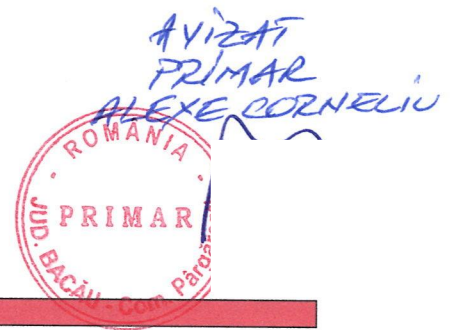 AVIZAT
PRIMAR
ALEXE CORNELIU
ROMÂNIA
PRIMAR
JUD. BACĂU - Com